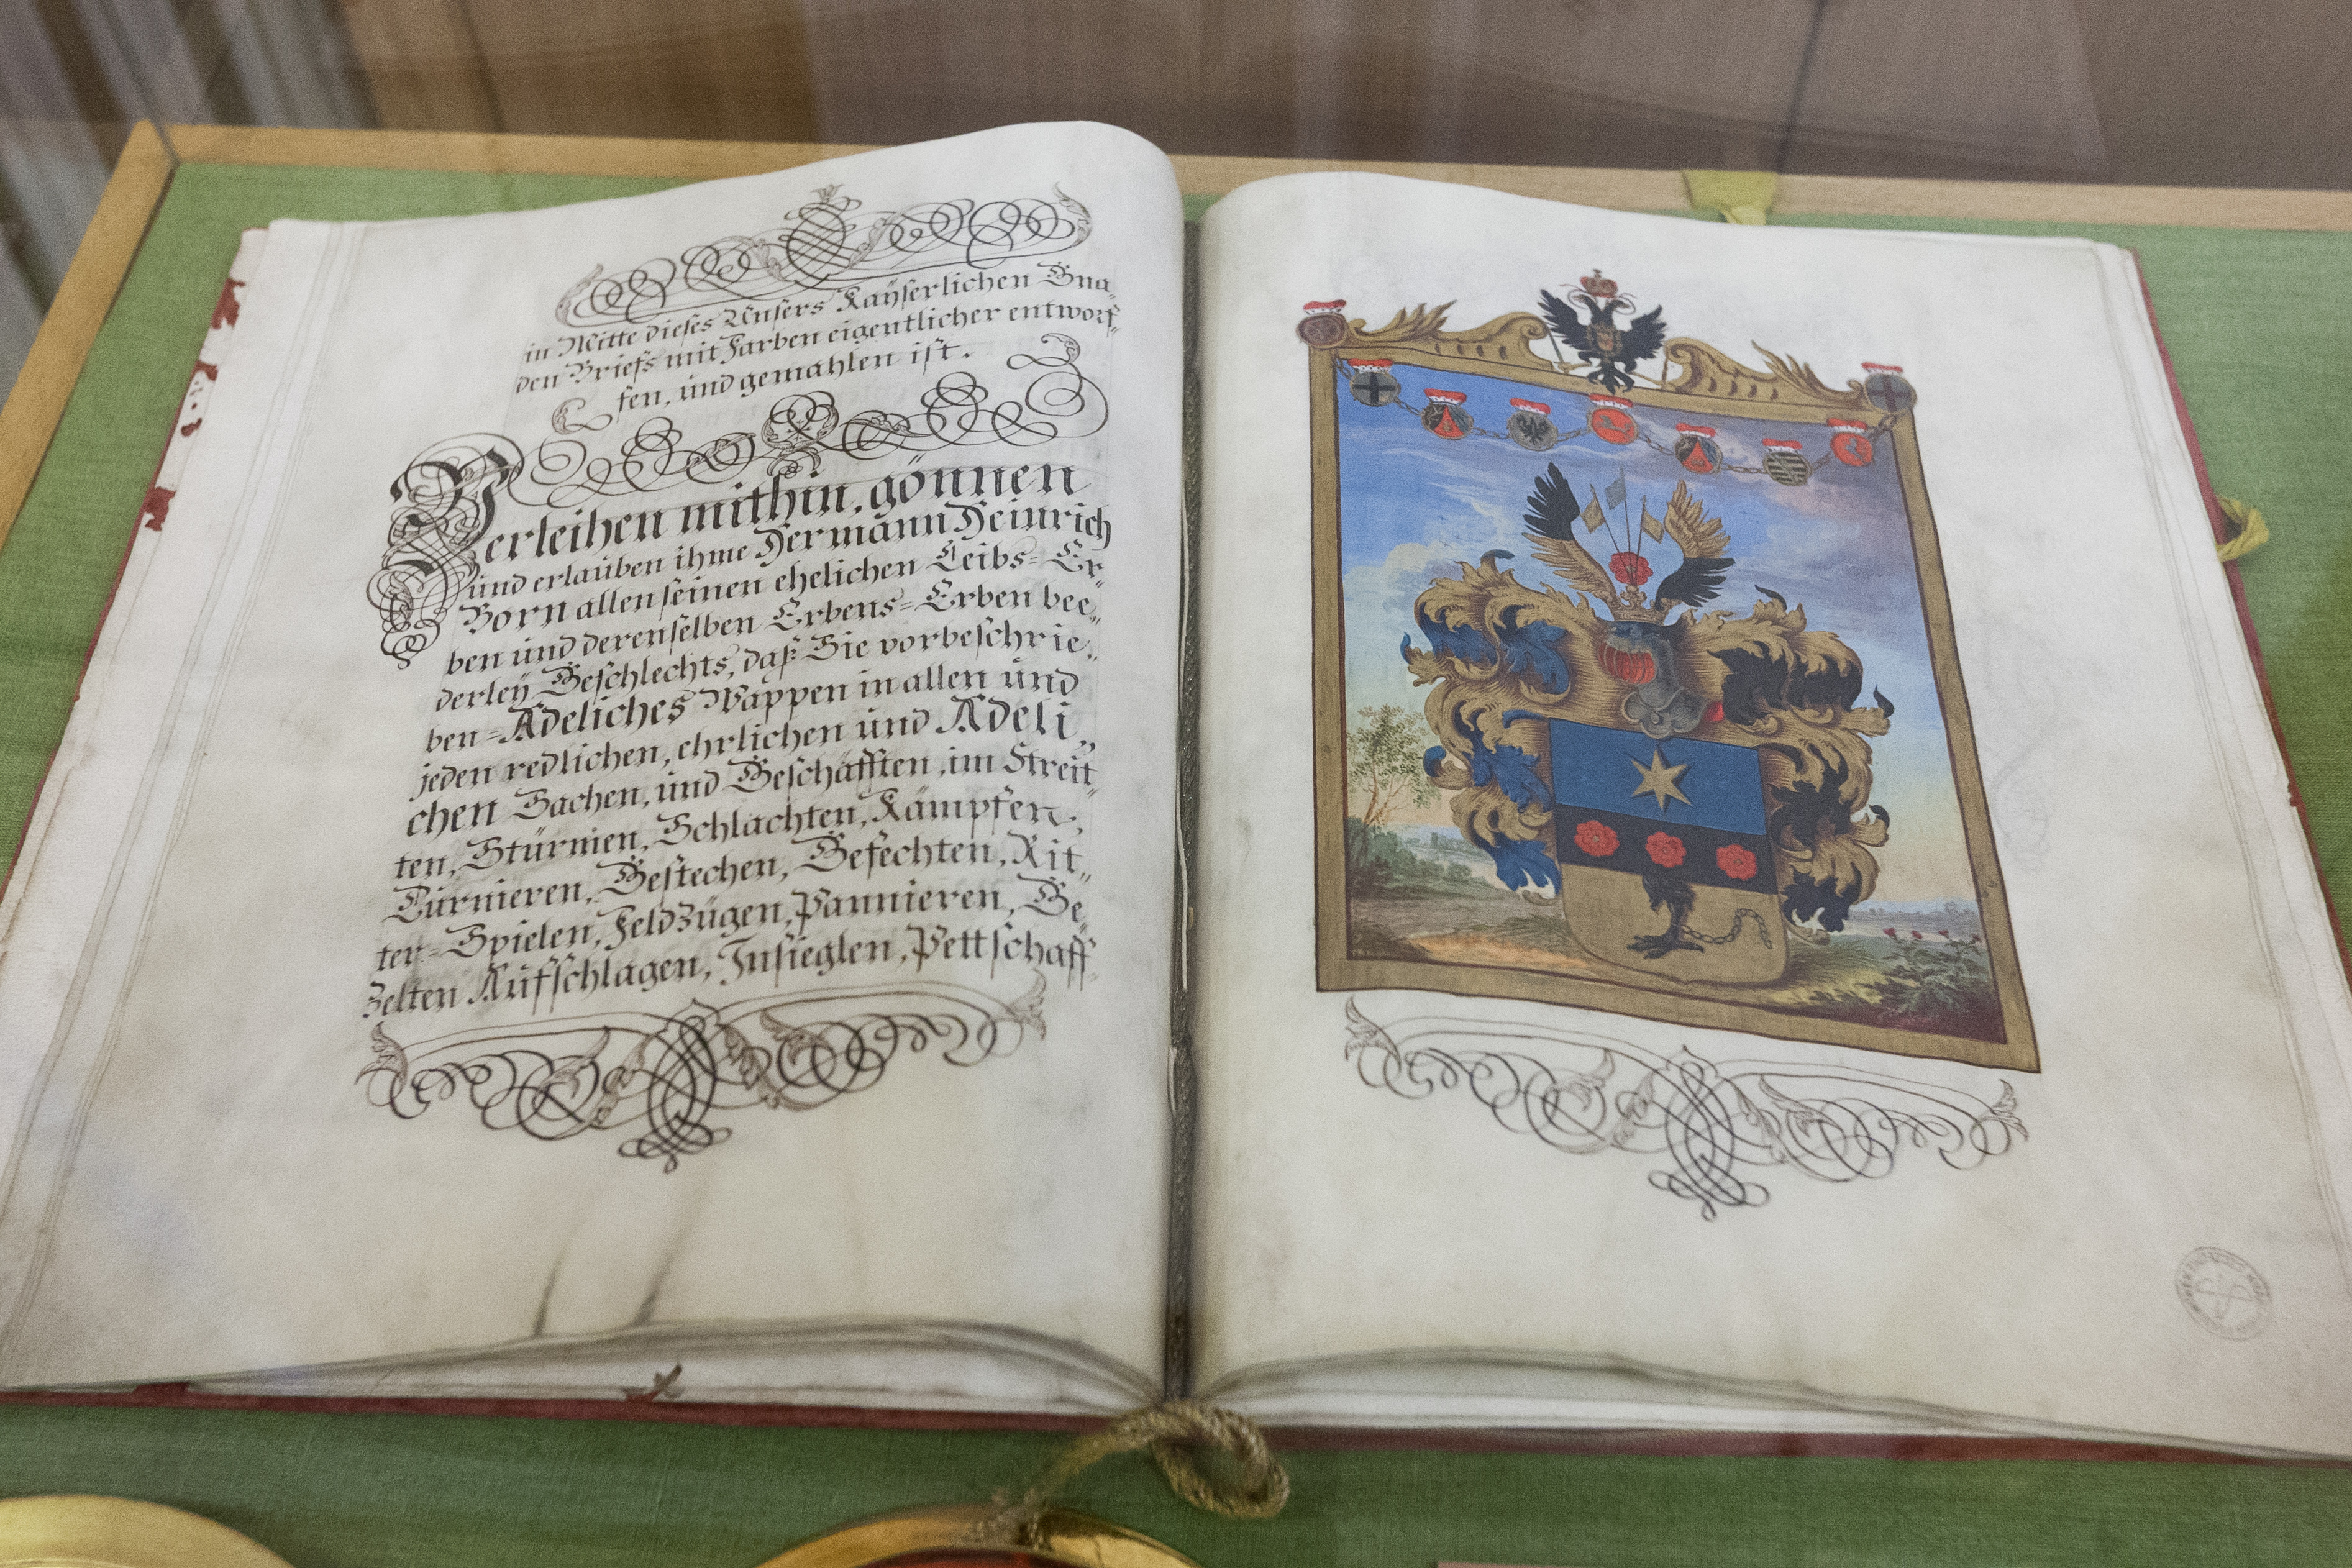 in Mitte dieses Unsers Kaÿserlichen Gna„
den Briefs mit Farben eigentlicher entworf„
fen, und gemahlen ist.
Verleihen mithin, gönnen
und erlauben ihme Hermann Heinrich
Born allen seinen ehelichen Leibs=Er„
ben und derenselben Erbens=Erben bee„
derleÿ Geschlechts, daß Sie vorbeschrie„
ben=Adeliches Wappen in allen und
jeden redlichen, ehrlichen und Adeli„
chen Sachen, und Geschäfften, im Streit„
ten, Stürmen, Schlachten, Kämpfen,
Turnieren, Gestechen, Gefechten, Rit„
ter=Spielen, Feldzügen, Pannieren, Ge„
zelten Aufschlagen, Insieglen, Pettschaff„